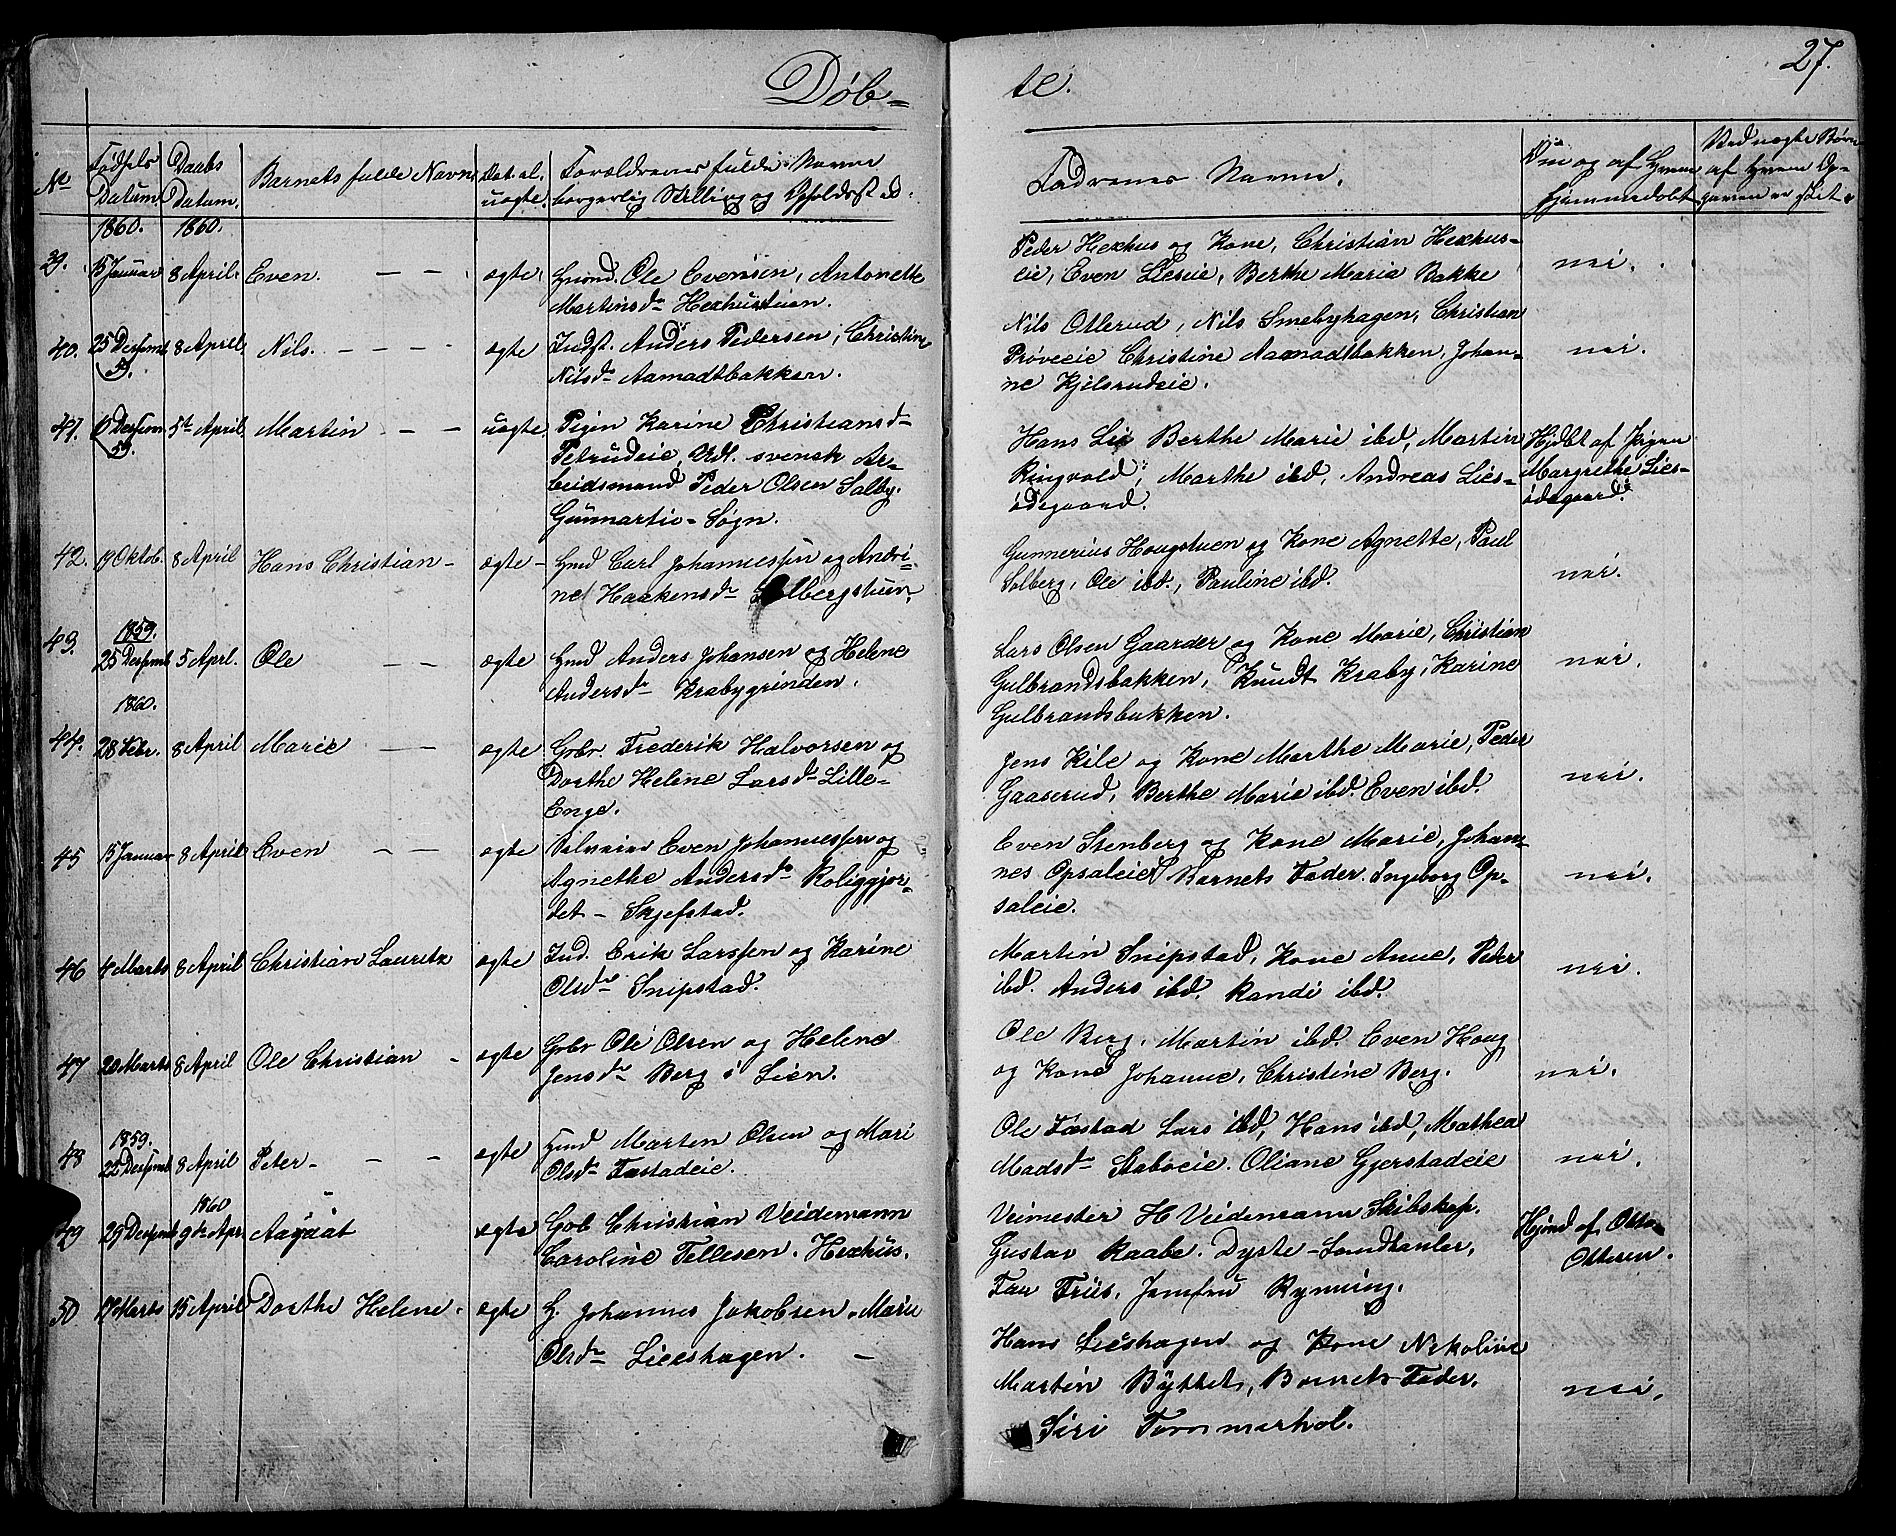 Døb=
te.
27.
No
Fødsels Datum.
Daabs Datum.
Barnets fulde Navn.
uægte.
Forældrenes fulde Navne
borgerlig Stilling og Opholdssted.
Fadrenes Navne.
hjemmedøbt
1860. 1860.
39. 15 Januar 8 April. Even. — — ægte. Huusmd. Ole Evensen, Antonette
Martinsdr Hexhustuen.
Peder Hexhus og Kone, Christian Hexhus-
eie, Even Lieseie, Berthe Marie Bakke
nei.
40. 25 Desemb 8 April. Nils. — — — — ægte Indst. Anders Pedersen, Christine
59.
Nilsdr Aamodtbakken.
Nils Otlerud, Nils Smebyhagen, Christian
Prøveeie Christine Aamodtbakken, Johan-
ne Kjelsrudeie.
nei.
41. Desem 5te April. Martin — — uægte. Pigen Karine Christiansdr
59.
Petrudeie, Udl. svensk Ar-
beidsmand Peder Olsen Salby.
Gunnartie-Sogn.
Hans Lie Berthe Marie ibd, Martin
Ringvold, Marthe ibd, Andreas Lies-
ødegaard.
Hjdbt af Pigen
Margrethe Lies-
ødegaard.
42. 19 Oktob. 8 April Hans Christian — ægte — Hmd Carl Johannessen og Andri-
ne Haakensdr Solbergstuen.
Gunnerius Hougstuen og Kone Agnette, Paul
Solberg, Ole ibd., Pauline ibd.
nei.
1859.
43. 25 Desemb 5 Aprl. Ole — — ægte Hmd Anders Johansen og Helene
Andersdr Krabygrinden.
Lars Olsen Gaarder og Kone Marie, Christian
Gulbrandsbakken, Knudt Kraby, Karine
Gulbrandsbakken.
nei.
1860.
44. 28 Febr. 8 April Marie — — ægte Gbr. Frederik Halvorsen og
Dorthe Helene Larsdr Lille-
Enge.
Jens Kile og Kone Marthe Marie, Peder
Gaaserud, Berthe Marie ibd. Even ibd.
nei.
45 15 Januar 8 April Even — — ægte Selveier Even Johannessen og
Agnethe Andersdr Roliggjor-
det — Skjefstad.
Even Stenberg og Kone Marie, Johan-
nes Opsaleie, Barnets Fader. Ingeborg Op-
saleie.
nei.
46 4 Marts 8 April Christian Lauritz ægte Ind. Erik Larssen og Karine
Olsdr Snipstad.
Martin Snipstad, Kone Anne, Peder
ibd. Anders ibd. Randi ibd.
nei.
47 20 Marts 8 April Ole Christian — ægte Gbr Ole Olsen og Helene
Jensdr Berg i Lien.
Ole Berg, Martin ibd. Even Houg
og Kone Johanne, Christine Berg.
nei.
1859.
48 22 Desemb 8 April Peter — — — ægte Hmd Marten Olsen og Mari
Olsdr Fæstadeie.
Ole Fæstad Lars ibd, Hans ibd, Mathea
Madsdr Staboeie. Oliane Gjerstadeie
nei.
1860
49 29 Desemb 9de Apr. Aagaat ægte Gbr Christian Veidemann
Caroline Tellesen. Hexhus.
Veimester H Veidemann Skibskap.
Gustav Raabe. Dyste-Landhanler,
Fru Friis, Jomfru Rynning.
Hjmd af Okto-
Ottesen.
50 17 Marts 15 April Dorthe Helene. ægte H. Johannes Jakobsen. Marie
Olsdr Lieshagen. —
Hans Lieshagen og Kone Nikoline
Martin Byttet, Barnets Fader.
Siri Tommerhol.
nei.